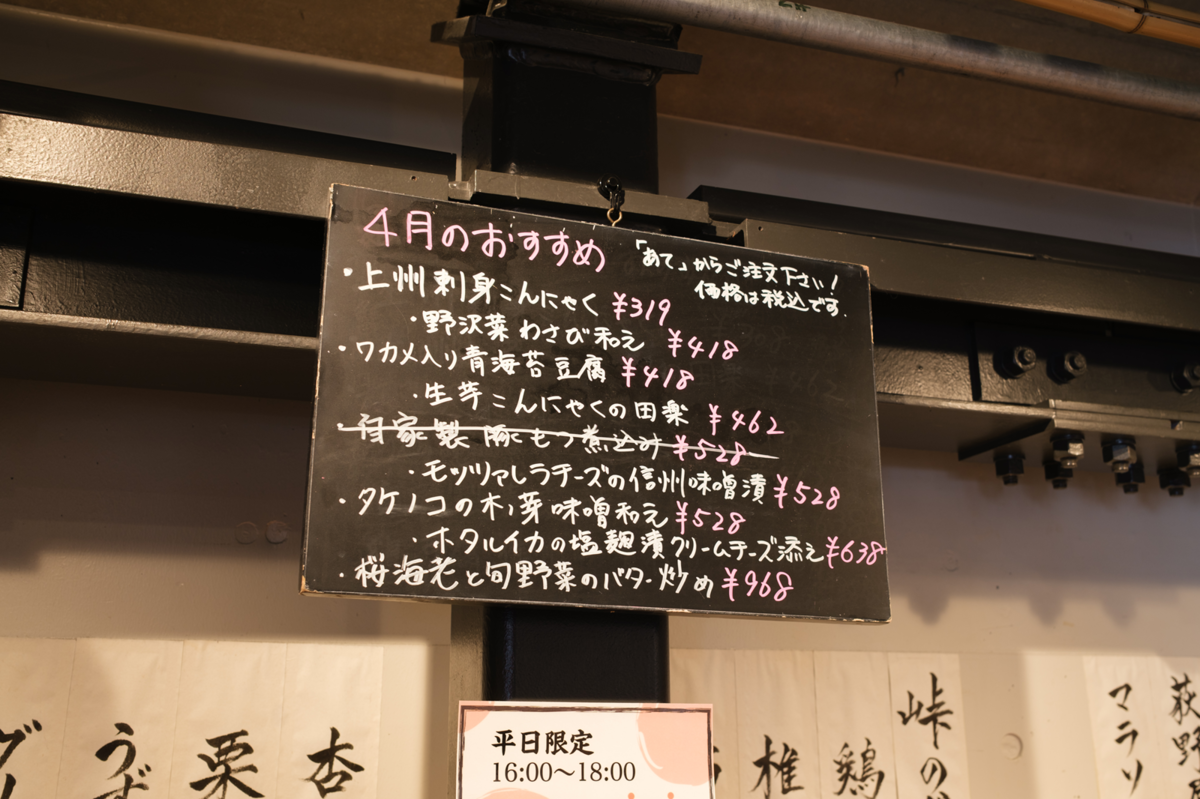 4月のおすすめ
「あて」からご注文下さい!
価格は税込です.
・上州刺身こんにゃく ¥319
・野沢菜わさび和え ¥418
・ワカメ入り青海苔豆腐 ¥418
・生芋こんにゃくの田楽 ¥462
・自家製豚もつ煮込み ¥528
・モッツァレラチーズの信州味噌漬 ¥528
・タケノコの木ノ芽味噌和え ¥528
・ホタルイカの塩麹漬クリームチーズ添え ¥638
・桜海老と旬野菜のバター炒め ¥968
平日限定
16:00〜18:00
うず
栗
杏
椎
鶏
峠の
マラソ
荻野